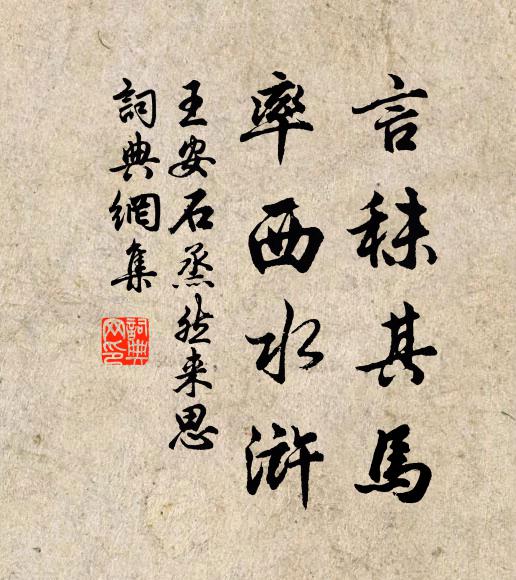 言秣其馬
率西水滸
王安石烝然来思
詞典網集
詞典
網印